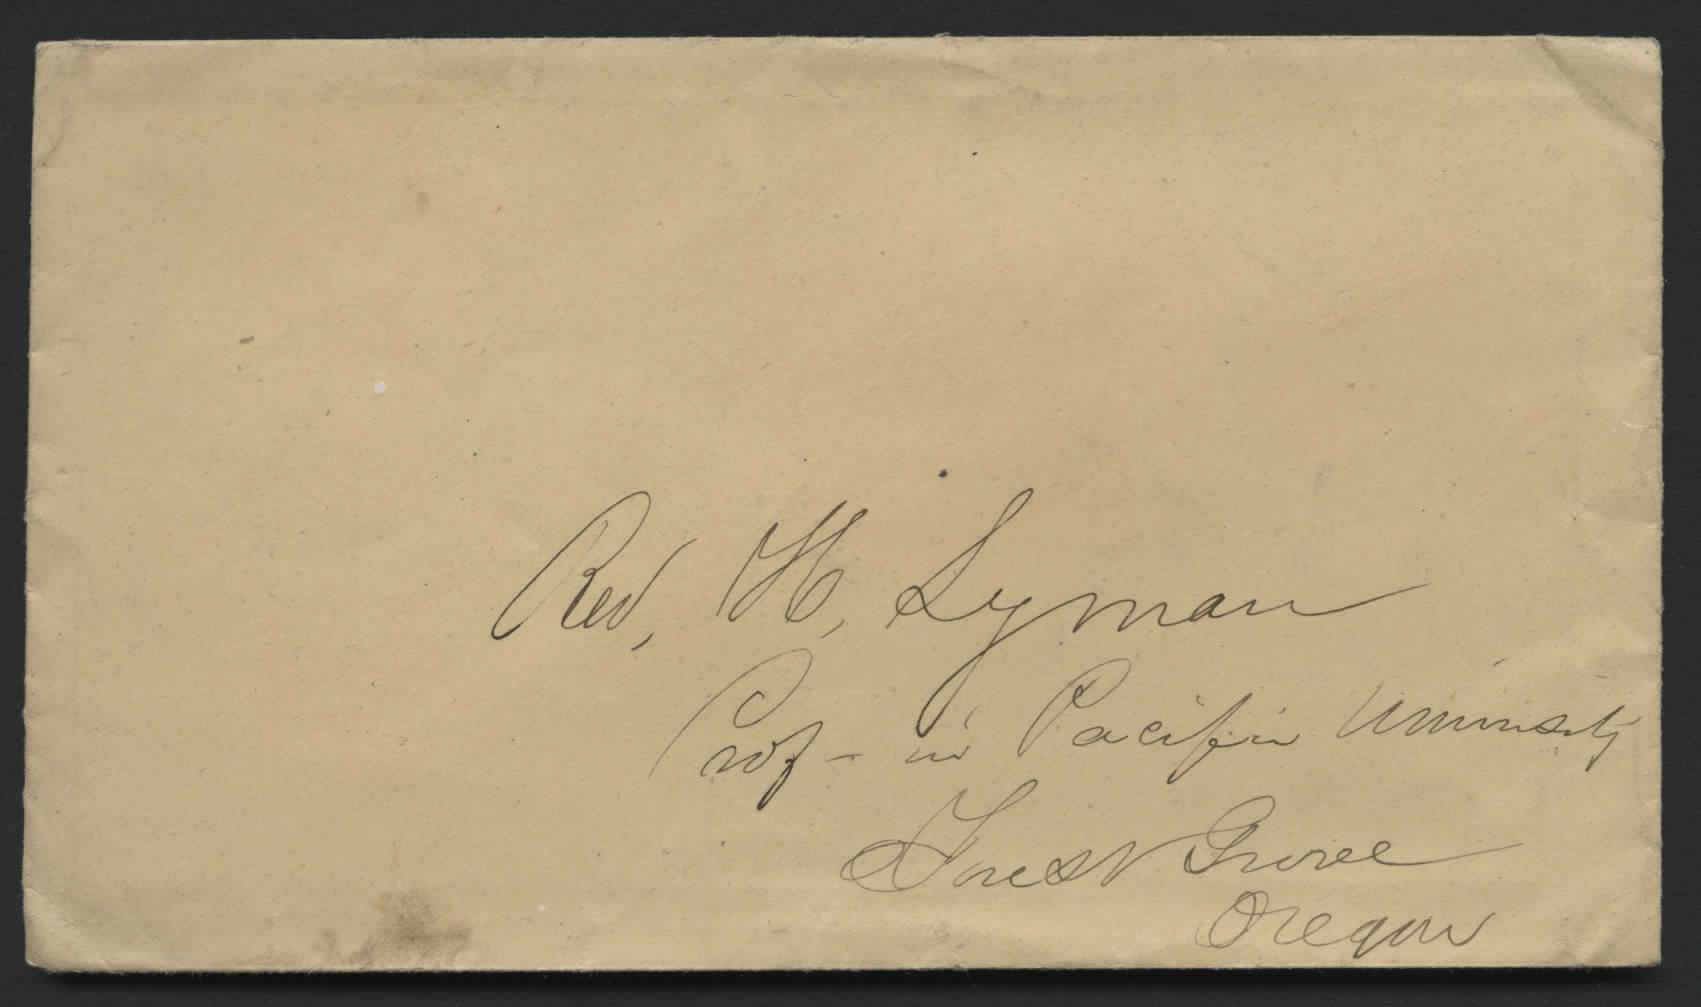 Rev, H, Lyman
Prof - in Pacific University
Forest Grove
Oregon